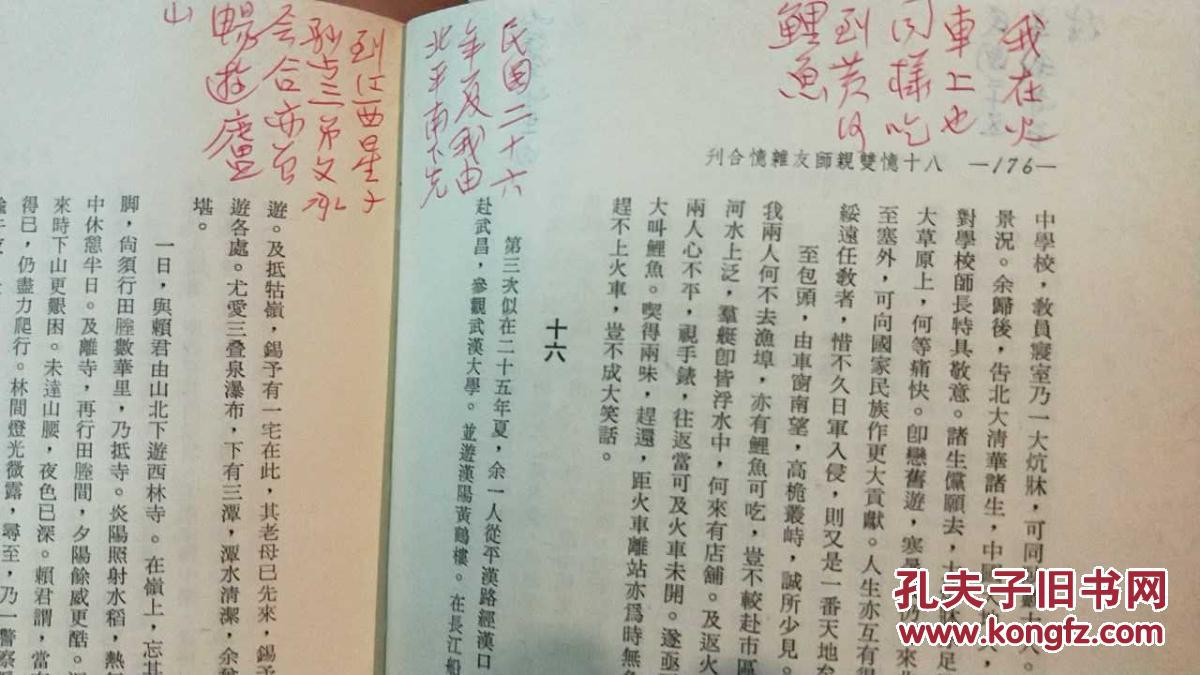 我在火
車上也
同樣吃
到黃河
鯉魚
民国二十六
年夏我由
北平南下先
到江西星子
会合亦曾
暢遊廬
山
八十憶雙親師友雜憶合刊 —176—
中學校，教員寢室乃一大炕牀，可同
景況。余歸後，告北大清華諸生，中
對學校師長特具敬意。諸生儻願去，
大草原上，何等痛快。卽戀舊遊，寒
至塞外，可向國家民族作更大貢獻。人生亦互有得
綏遠任教者，惜不久日軍入侵，則又是一番天地矣
至包頭，由車窗南望，高桅叢峙，誠所少見。
我兩人何不去漁埠，亦有鯉魚可吃，豈不較赴市區
河水上泛，羣艇卽皆浮水中，何來有店舖。及返火
兩人心不平，視手錶，往返當可及火車未開。遂亟
大叫鯉魚。喫得兩味，趕還，距火車離站亦爲時無
趕不上火車，豈不成大笑話。
十六
第三次似在二十五年夏，余一人從平漢路經漢口
赴武昌，參觀武漢大學。並遊漢陽黃鶴樓。在長江船
遊。及抵牯嶺，錫予有一宅在此，其老母已先來，錫予
遊各處。尤愛三叠泉瀑布，下有三潭，潭水清潔，余
堪。
一日，與賴君由山北下遊西林寺。在嶺上，忘其
脚，尙須行田塍數華里，乃抵寺。炎陽照射水稻，熱
中休憩半日。及離寺，再行田塍間，夕陽餘威更酷。
來時下山更艱困。未達山腰，夜色已深。賴君謂，當
得已，仍盡力爬行。林間燈光微露，尋至，乃一警察
孔夫子旧书网
www.kongfz.com